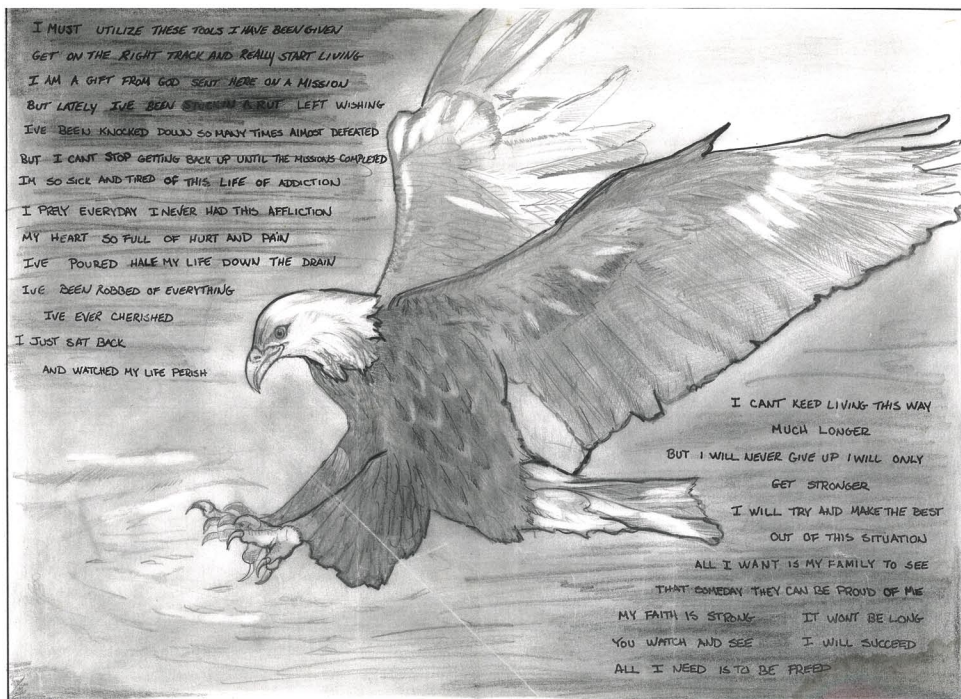 I MUST UTILIZE THESE TOOLS I HAVE BEEN GIVEN
GET ON THE RIGHT TRACK AND REALLY START LIVING
I AM A GIFT FROM GOD SENT HERE ON A MISSION
BUT LATELY IVE BEEN STUCK IN A RUT LEFT WISHING
IVE BEEN KNOCKED DOWN SO MANY TIMES ALMOST DEFEATED
BUT I CANT STOP GETTING BACK UP UNTIL THE MISSIONS COMPLETED
IM SO SICK AND TIRED OF THIS LIFE OF ADDICTION
I PRAY EVERYDAY I NEVER HAD THIS AFFLICTION
MY HEART SO FULL OF HURT AND PAIN
IVE POURED HALF MY LIFE DOWN THE DRAIN
IVE BEEN ROBBED OF EVERYTHING
IVE EVER CHERISHED
I JUST SAT BACK
AND WATCHED MY LIFE PERISH
I CANT KEEP LIVING THIS WAY
MUCH LONGER
BUT I WILL NEVER GIVE UP I WILL ONLY
GET STRONGER
I WILL TRY AND MAKE THE BEST
OUT OF THIS SITUATION
ALL I WANT IS MY FAMILY TO SEE
THAT SOMEDAY THEY CAN BE PROUD OF ME
MY FAITH IS STRONG IT WONT BE LONG
YOU WATCH AND SEE I WILL SUCCEED
ALL I NEED IS TO BE FREED